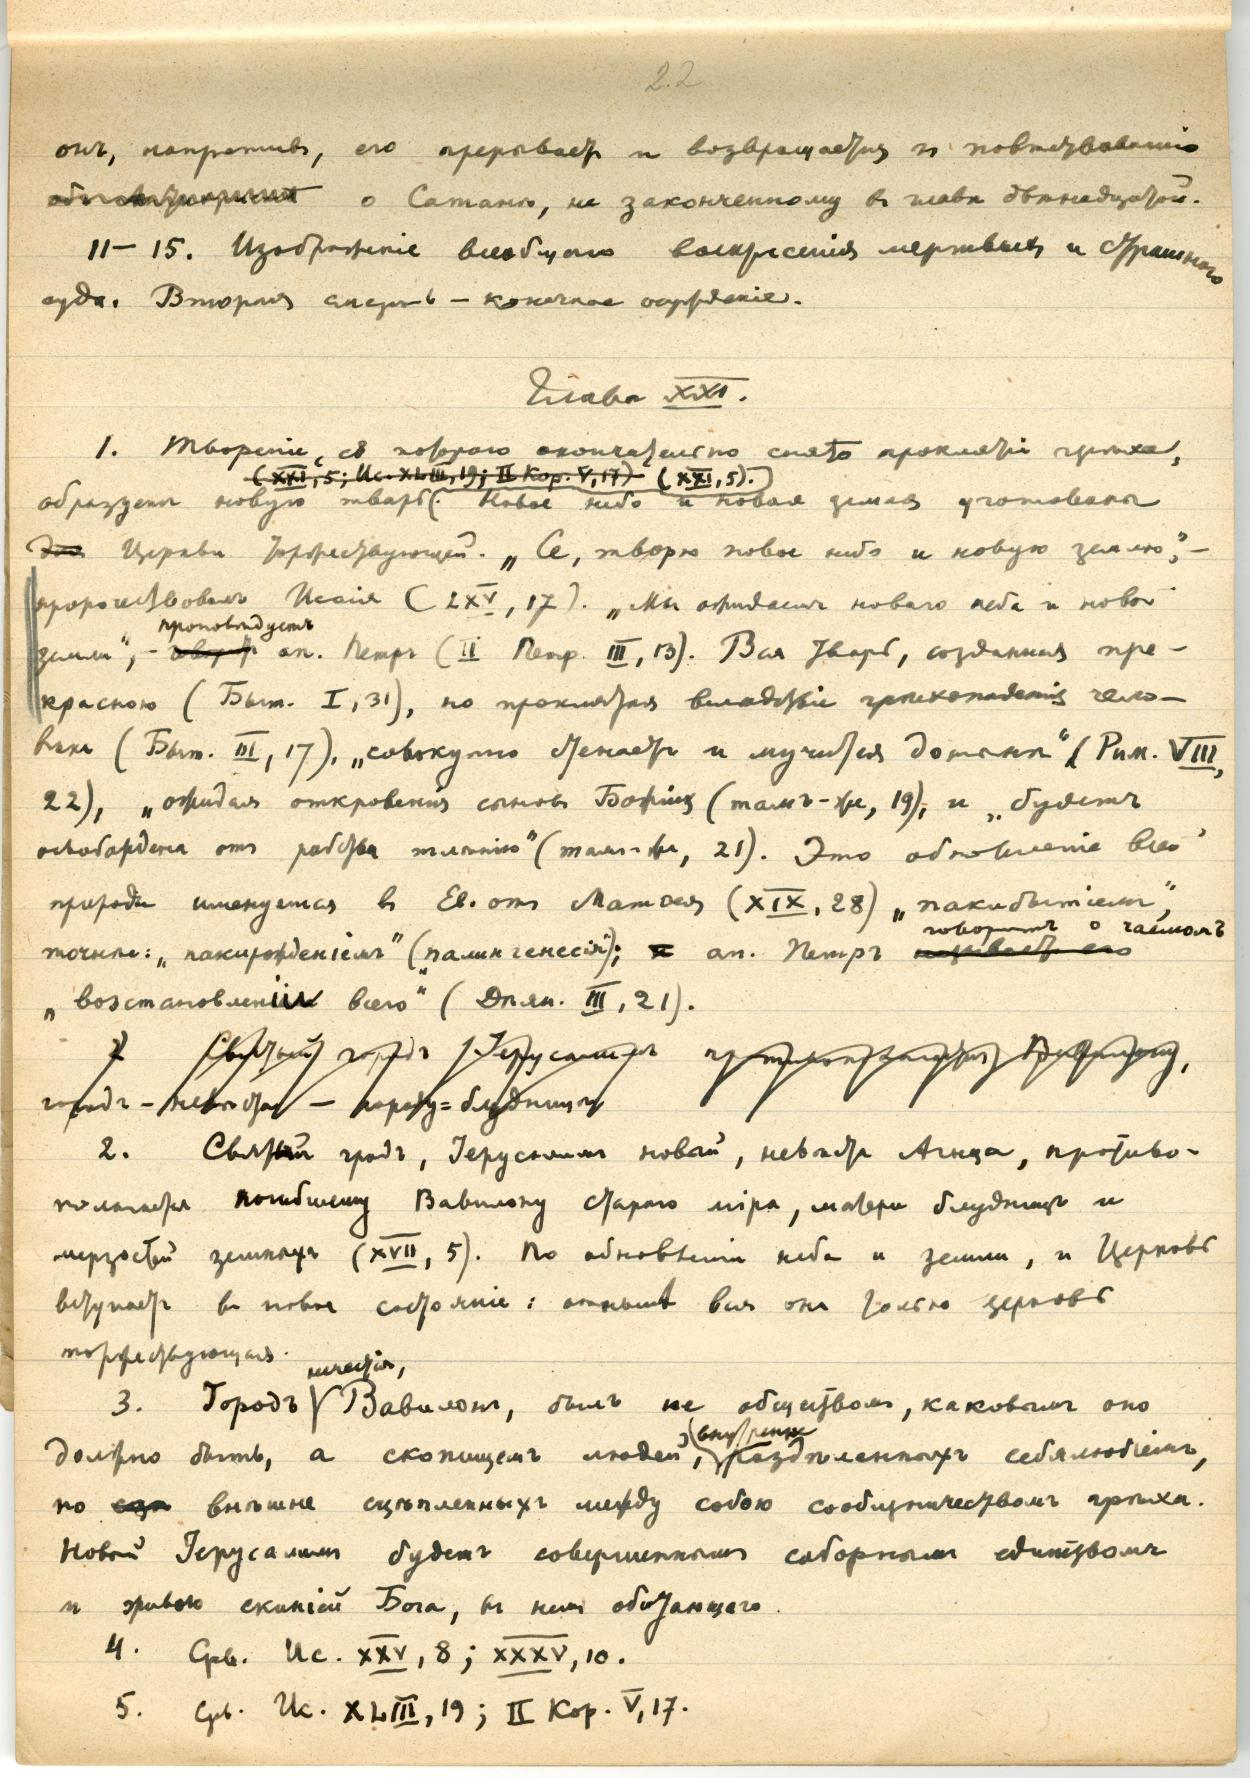 22
онъ, напротивъ, его прерываетъ и возвращается къ повѣствованію
о Сатанѣ, не законченному въ главѣ двѣнадцатой.
11–15. Изображеніе всеобщаго воскресенія мертвыхъ и Страшнаго
суда. Вторая смерть – конечное осужденіе.
Глава XXI.
1. Твореніе, съ котораго окончательно снято проклятіе грѣха,
(XXI, 5; Ис. XLIII, 19; II Кор. V, 17) (XXI, 5).
образуетъ новую тварь. Новое небо и новая земля уготованы
Церкви Торжествующей. „Се, творю новое небо и новую землю“, –
пророчествовалъ Исаія (LXV, 17). „Мы ожидаемъ новаго неба и новой
проповѣдуетъ
земли“, – ап. Петръ (II Петр. III, 13). Вся тварь, созданная пре–
красною (Быт. I, 31), но проклятая вслѣдствіе грѣхопаденія чело–
вѣка (Быт. III, 17), „совокупно стенаетъ и мучится донынѣ“ (Рим. VIII,
22), „ожидая откровенія сыновъ Божіихъ (тамъ-же, 19), и „будетъ
освобождена отъ рабства тлѣнію“ (тамъ-же, 21). Это обновленіе всей
природы именуется въ Ев. отъ Матѳея (XIX, 28) „пакибытіемъ“,
говоритъ о чаемомъ
точнѣе: „пакирожденіемъ“ („палингенесія“); ап. Петръ называетъ его
„возстановленіи всего“ (Дѣян. III, 21).
2 Святый городъ Іерусалимъ противополагается Вавилону,
городъ – невѣста – городу = блудницѣ
2. Святый градъ, Іерусалимъ новый, невѣста Агнца, противо–
полагается погибшему Вавилону стараго міра, матери блудницъ и
мерзостей земныхъ (XVII, 5). По обновленіи неба и земли, и Церковь
вступаетъ въ новое состояніе: отнынѣ вся она только церковь
торжествующая.
нечестія,
3. Городъ Вавилонъ, былъ не обществомъ, каковымъ оно
внутренне
должно быть, а скопищемъ людей, раздѣленныхъ себялюбіемъ,
но внѣшне сцѣпленныхъ между собою сообщничествомъ грѣха.
Новый Іерусалимъ будетъ совершеннымъ соборнымъ единствомъ
и живою скиніей Бога, въ немъ обитающаго.
4. Срв. Ис. XXV, 8; XXXV, 10.
5. Срв. Ис. XLIII, 19; II Кор. V, 17.